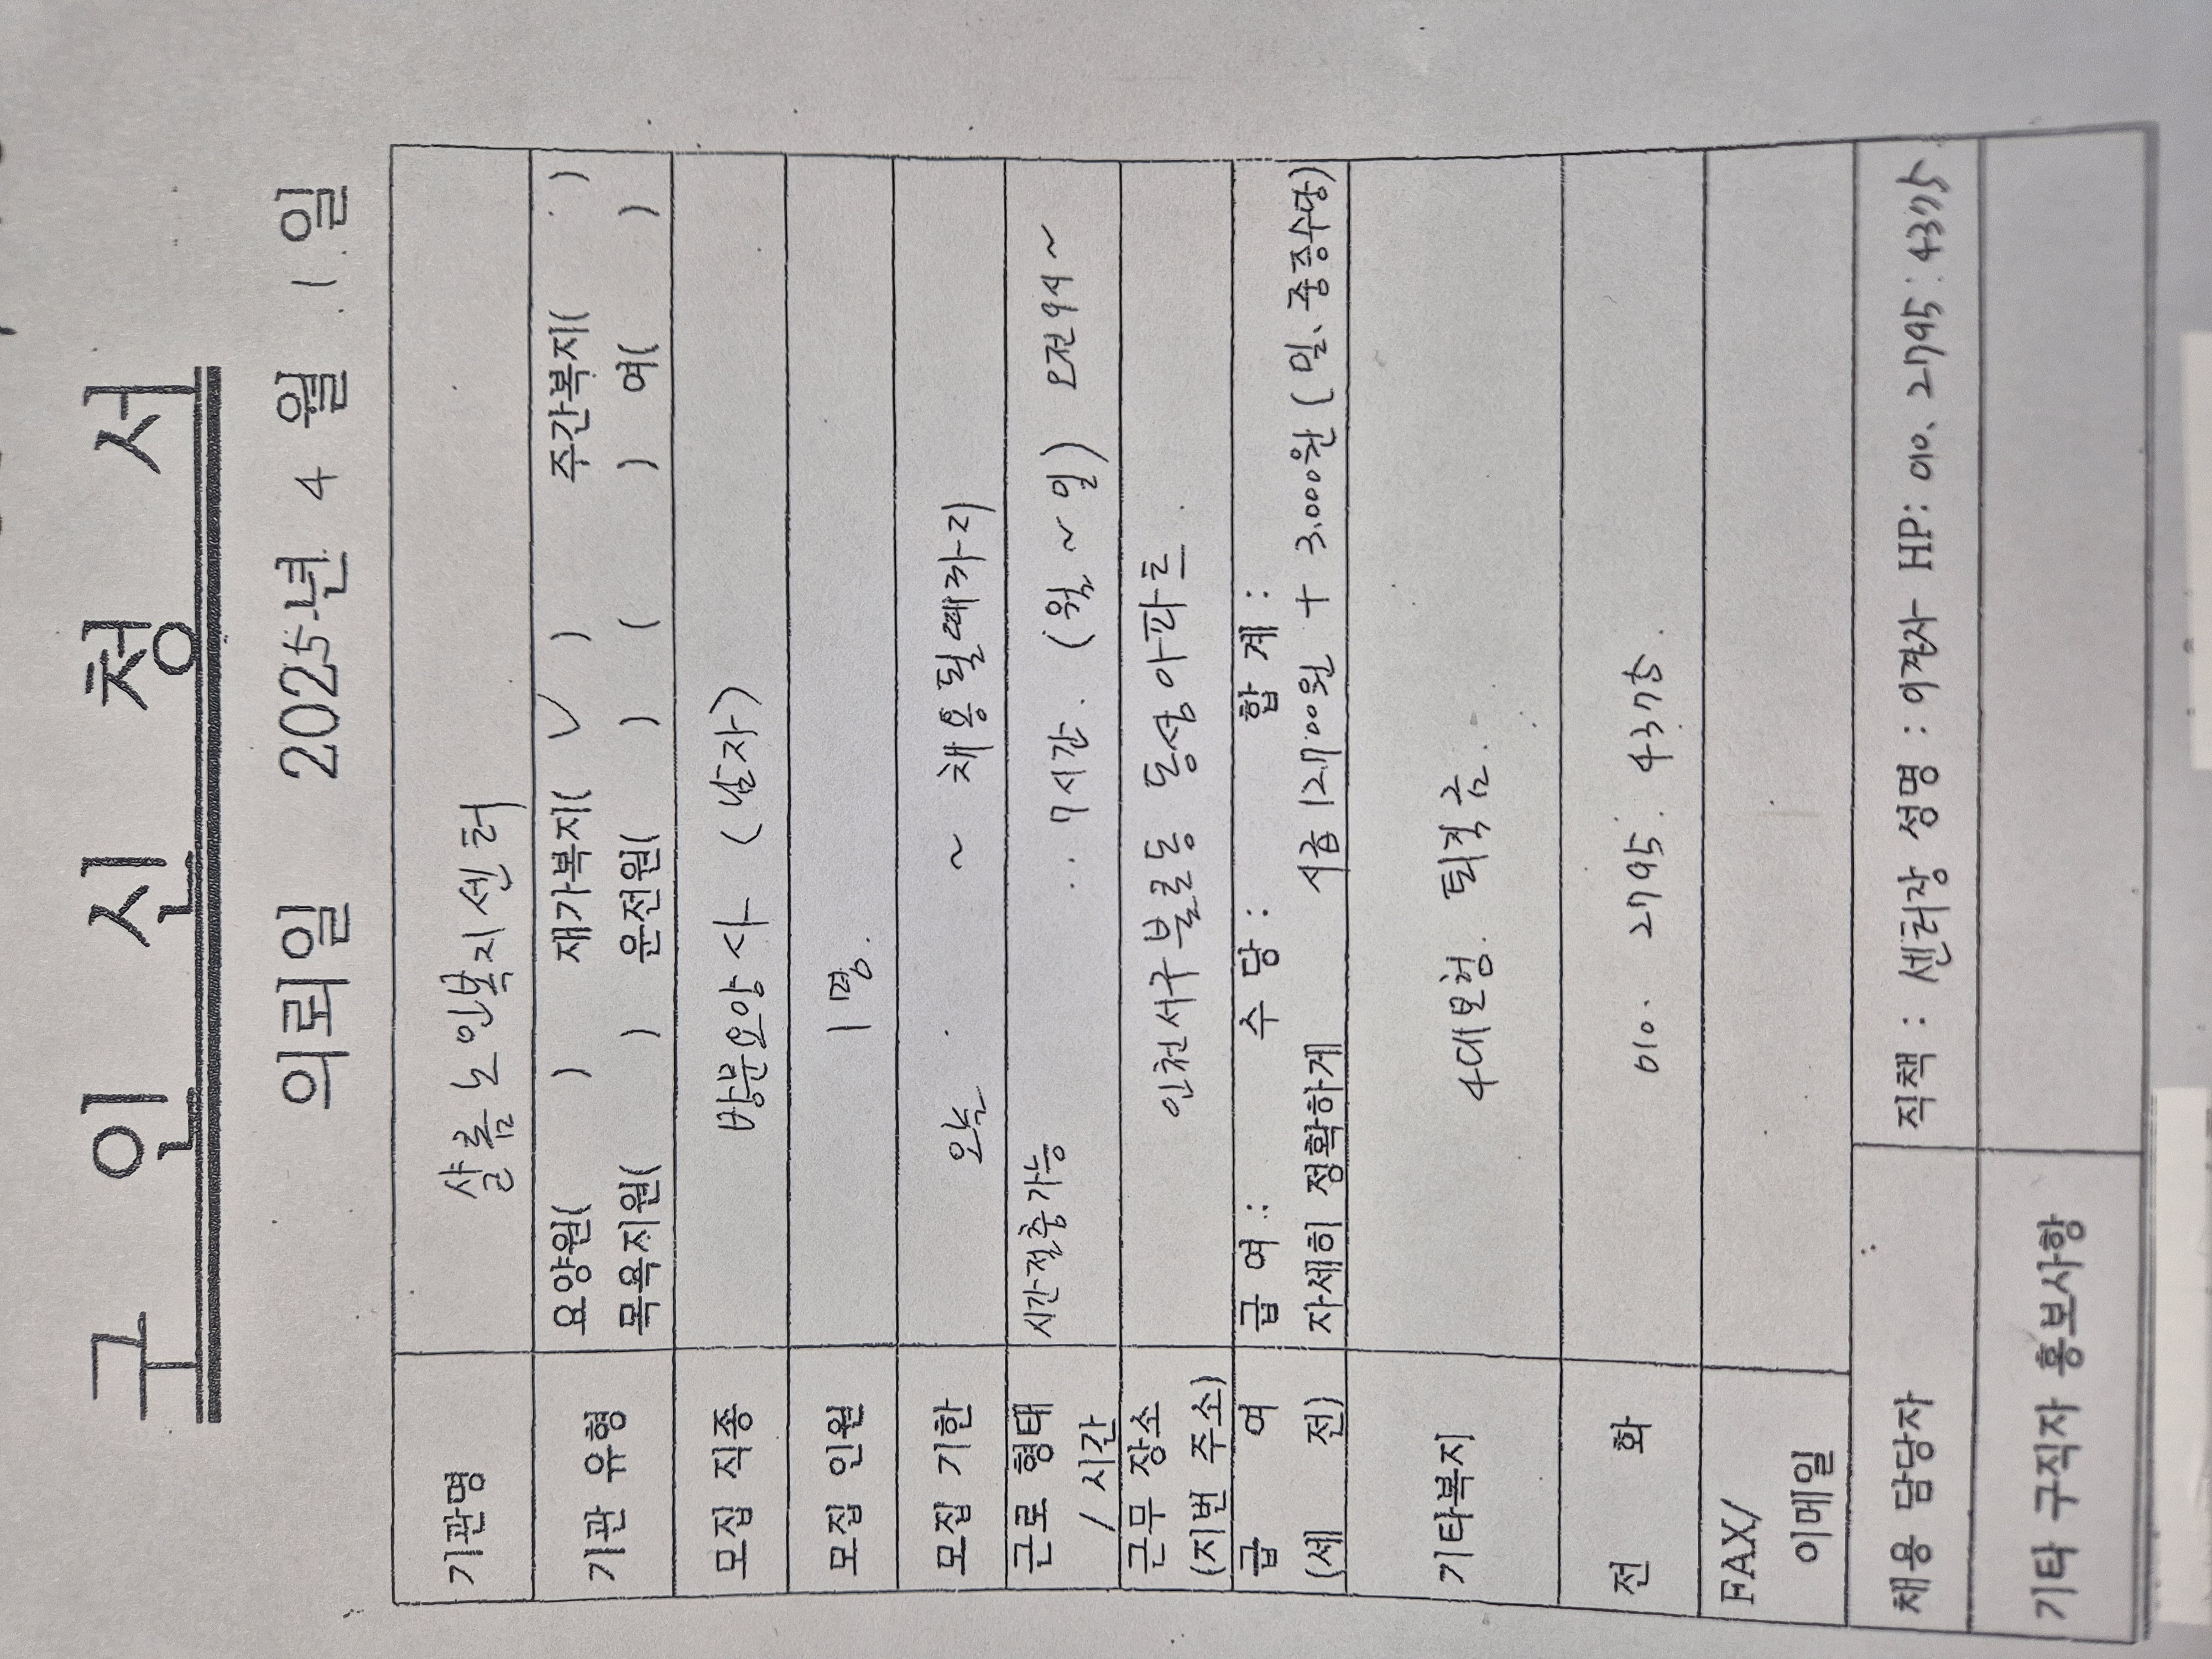 구 인 신 청 서
의뢰일 2025년 4 월 1 일
기관명 샬롬노인복지센터
기관 유형 요양원( ) 재가복지( ✓ ) 주간복지( )
목욕지원( ) 운전원( ) ( ) 여( )
모집 직종 방문요양사 (남자)
모집 인원 1명.
모집 기한 오늘 ~ 채용될때까지
근로 형태 / 시간 시간절충가능 7시간. (월 ~ 일) 오전9시 ~
근무 장소 (지번 주소) 인천서구불로동 동성아파트.
급 여 (세 전) 급 여 : 수 당 : 합 계 :
자세히 정확하게 시급 12.700원 + 3.000원 (일. 중증수당)
기타복지 4대보험. 퇴직금.
전 화 010. 2795. 4375.
FAX/
이메일
채용 담당자 직책 : 센터장 성명 : HP: 010. 2795. 4375
기타 구직자 홍보사항